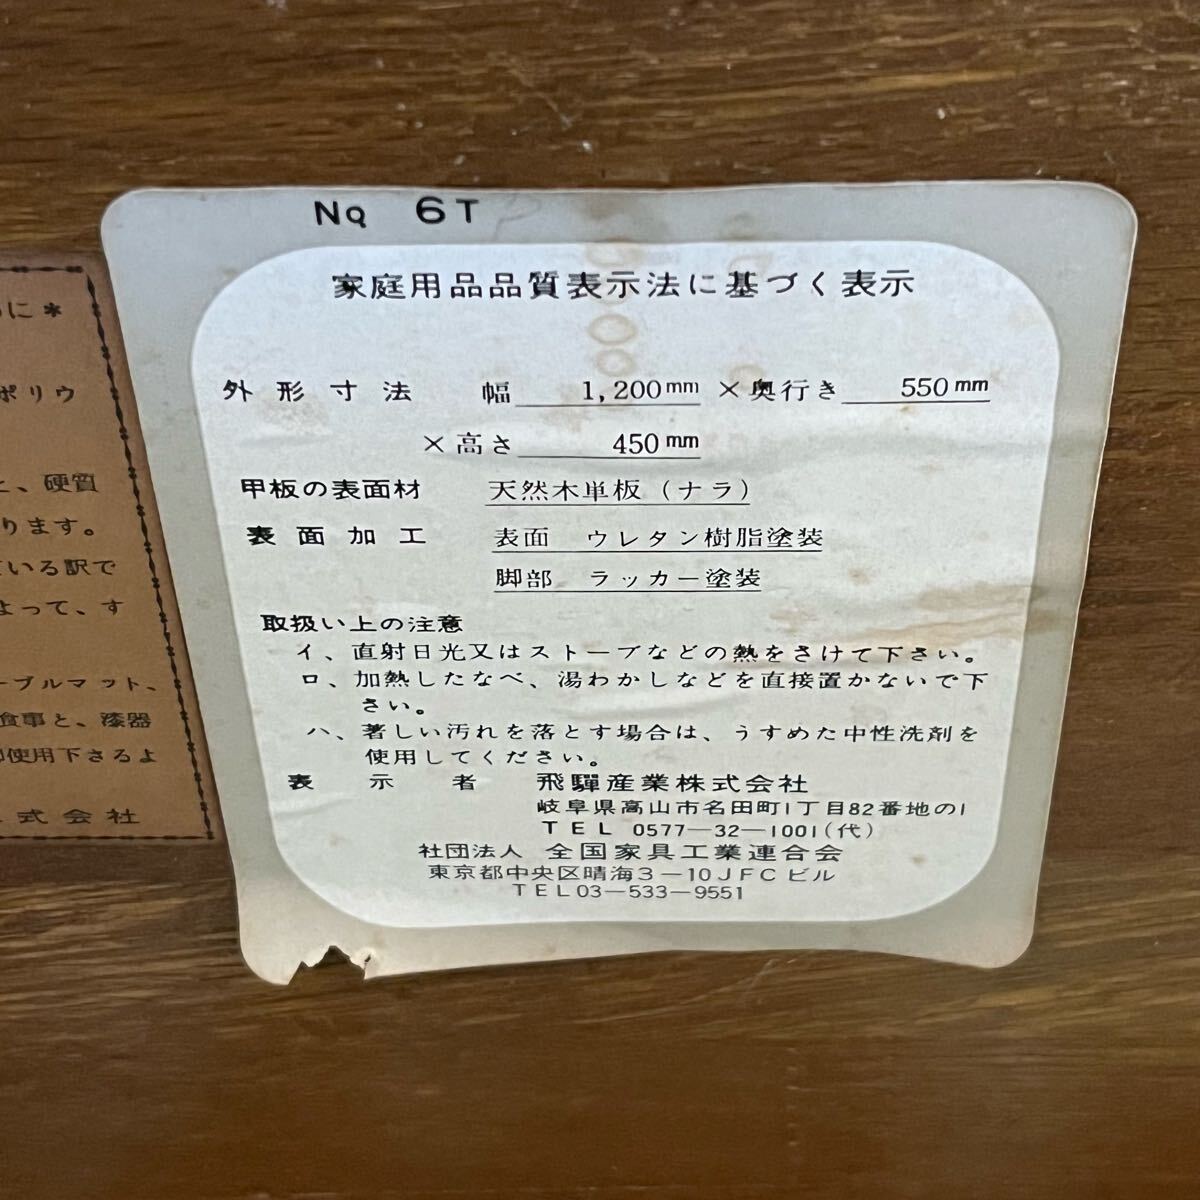 No. 6T
家庭用品品質表示法に基づく表示
外形寸法 幅 1,200mm ×奥行き 550mm
×高さ 450mm
甲板の表面材 天然木単板(ナラ)
表面加工 表面 ウレタン樹脂塗装
脚部 ラッカー塗装
取扱い上の注意
イ、直射日光又はストーブなどの熱をさけて下さい。
ロ、加熱したなべ、湯わかしなどを直接置かないで下
さい。
ハ、著しい汚れを落とす場合は、うすめた中性洗剤を
使用してください。
表示者 飛驒産業株式会社
岐阜県高山市名田町1丁目82番地の1
TEL 0577-32-1001(代)
社団法人 全国家具工業連合会
東京都中央区晴海3-10JFCビル
TEL03-533-9551
に*
ポリウ
、硬質
ります。
いる訳で
よって、す
ーブルマット、
食事と、漆器
使用下さるよ
式会社